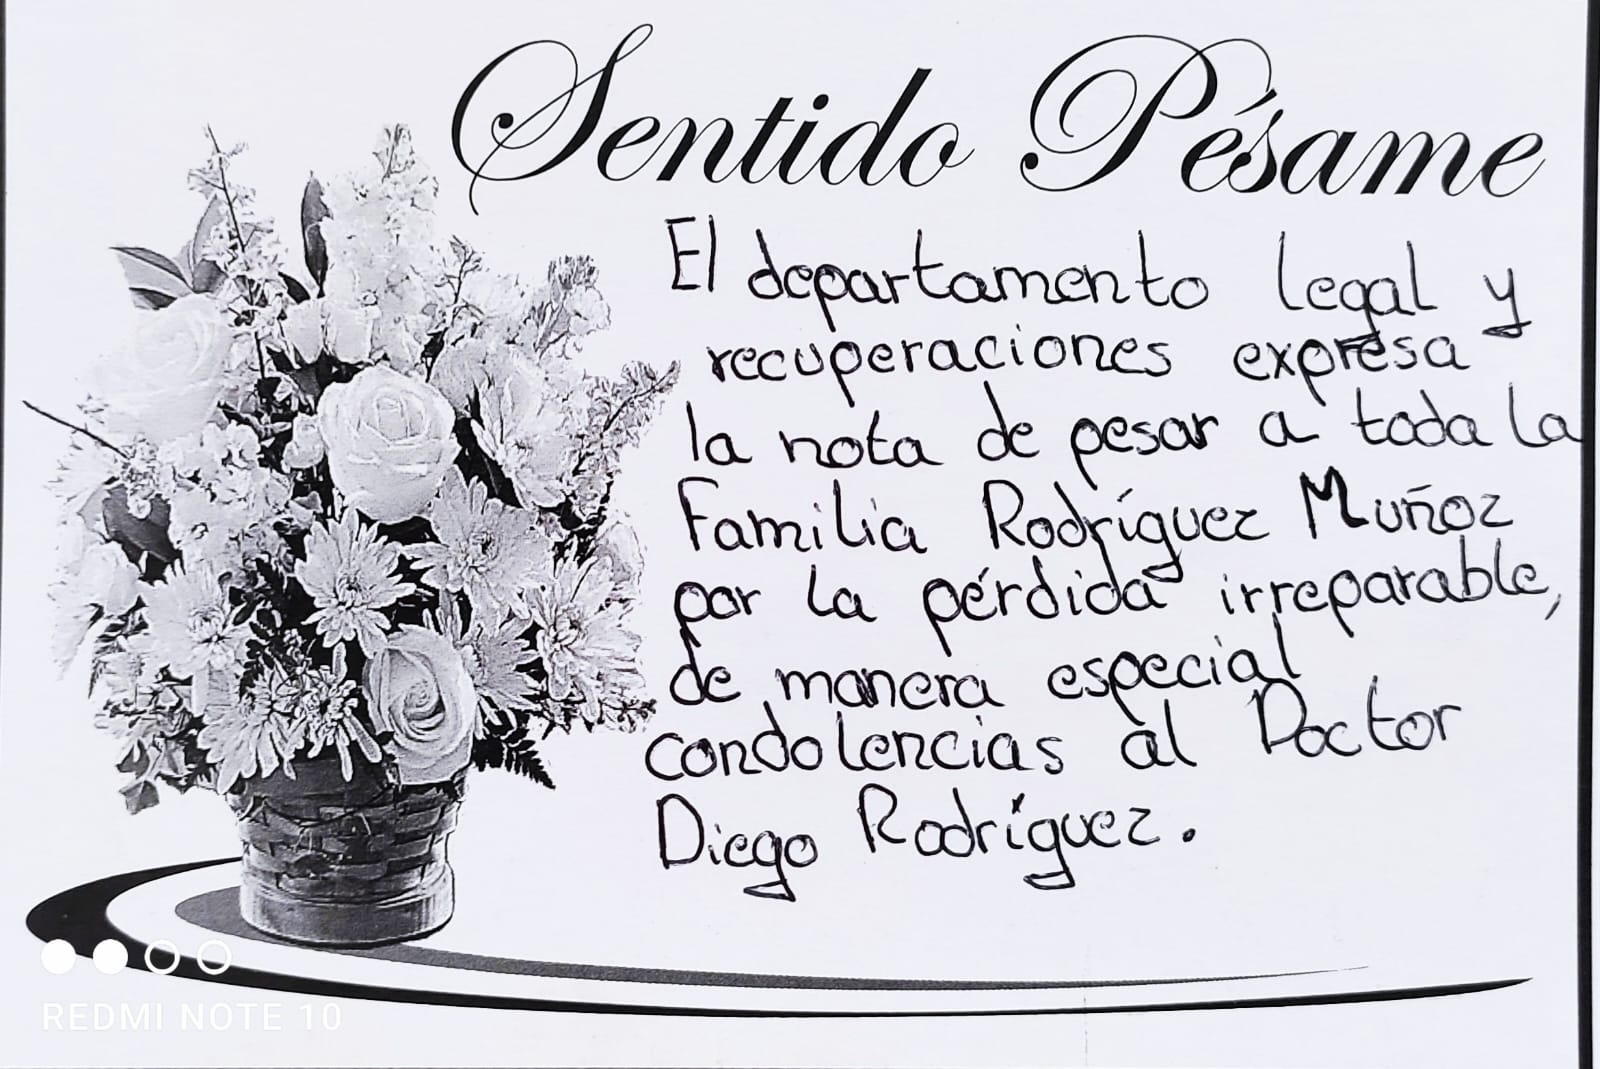 Sentido Pésame
El departamento legal y
recuperaciones expresa
la nota de pesar a toda la
Familia Rodríguez Muñoz
por la pérdida irreparable,
de manera especial
condolencias al Doctor
Diego Rodríguez.
REDMI NOTE 10